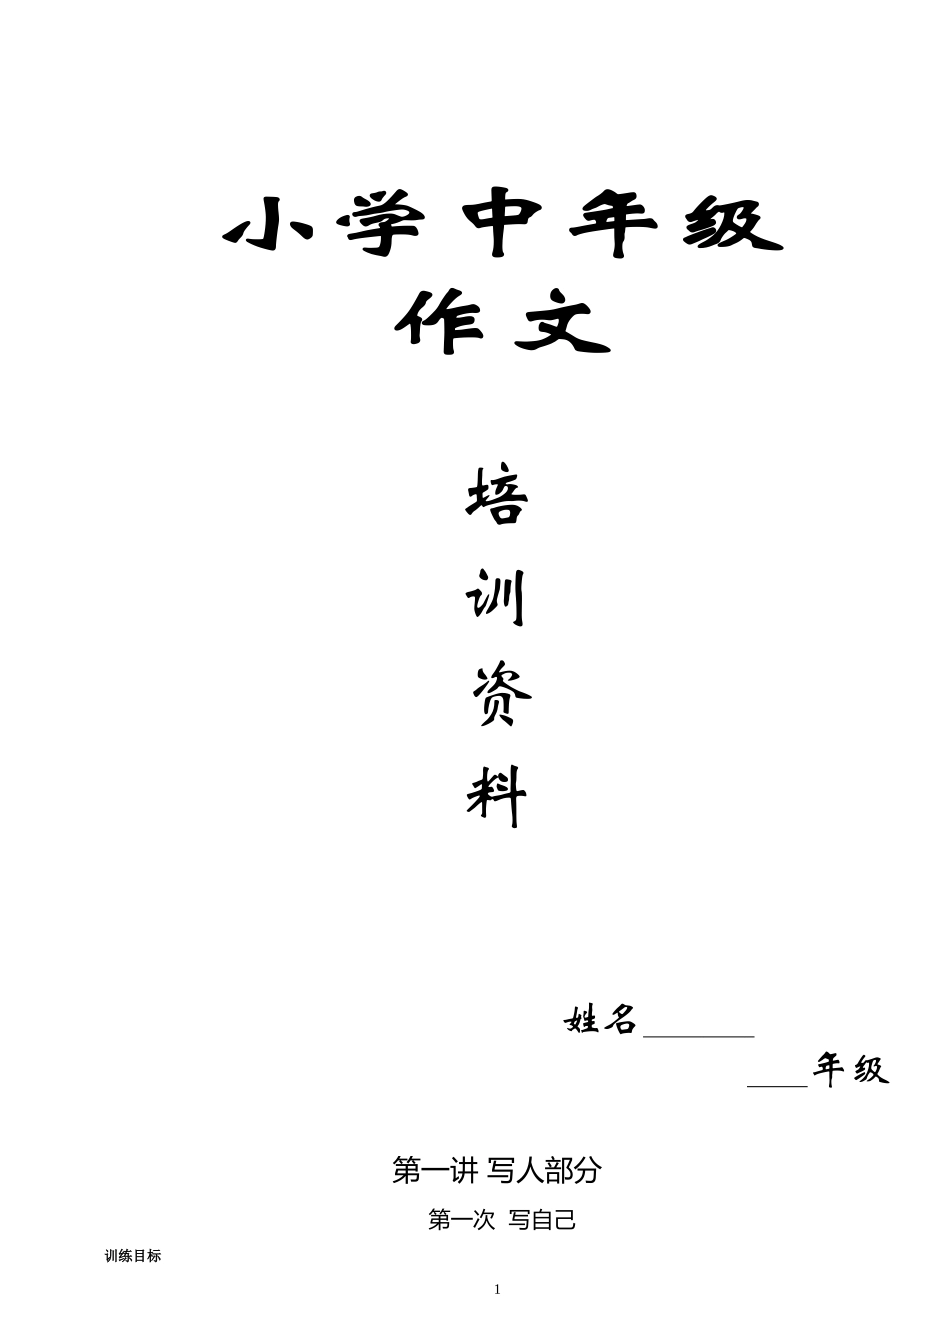 小学中年级
作文
培
训
资
料
姓名________
____年级
第一讲 写人部分
第一次 写自己
训练目标
1